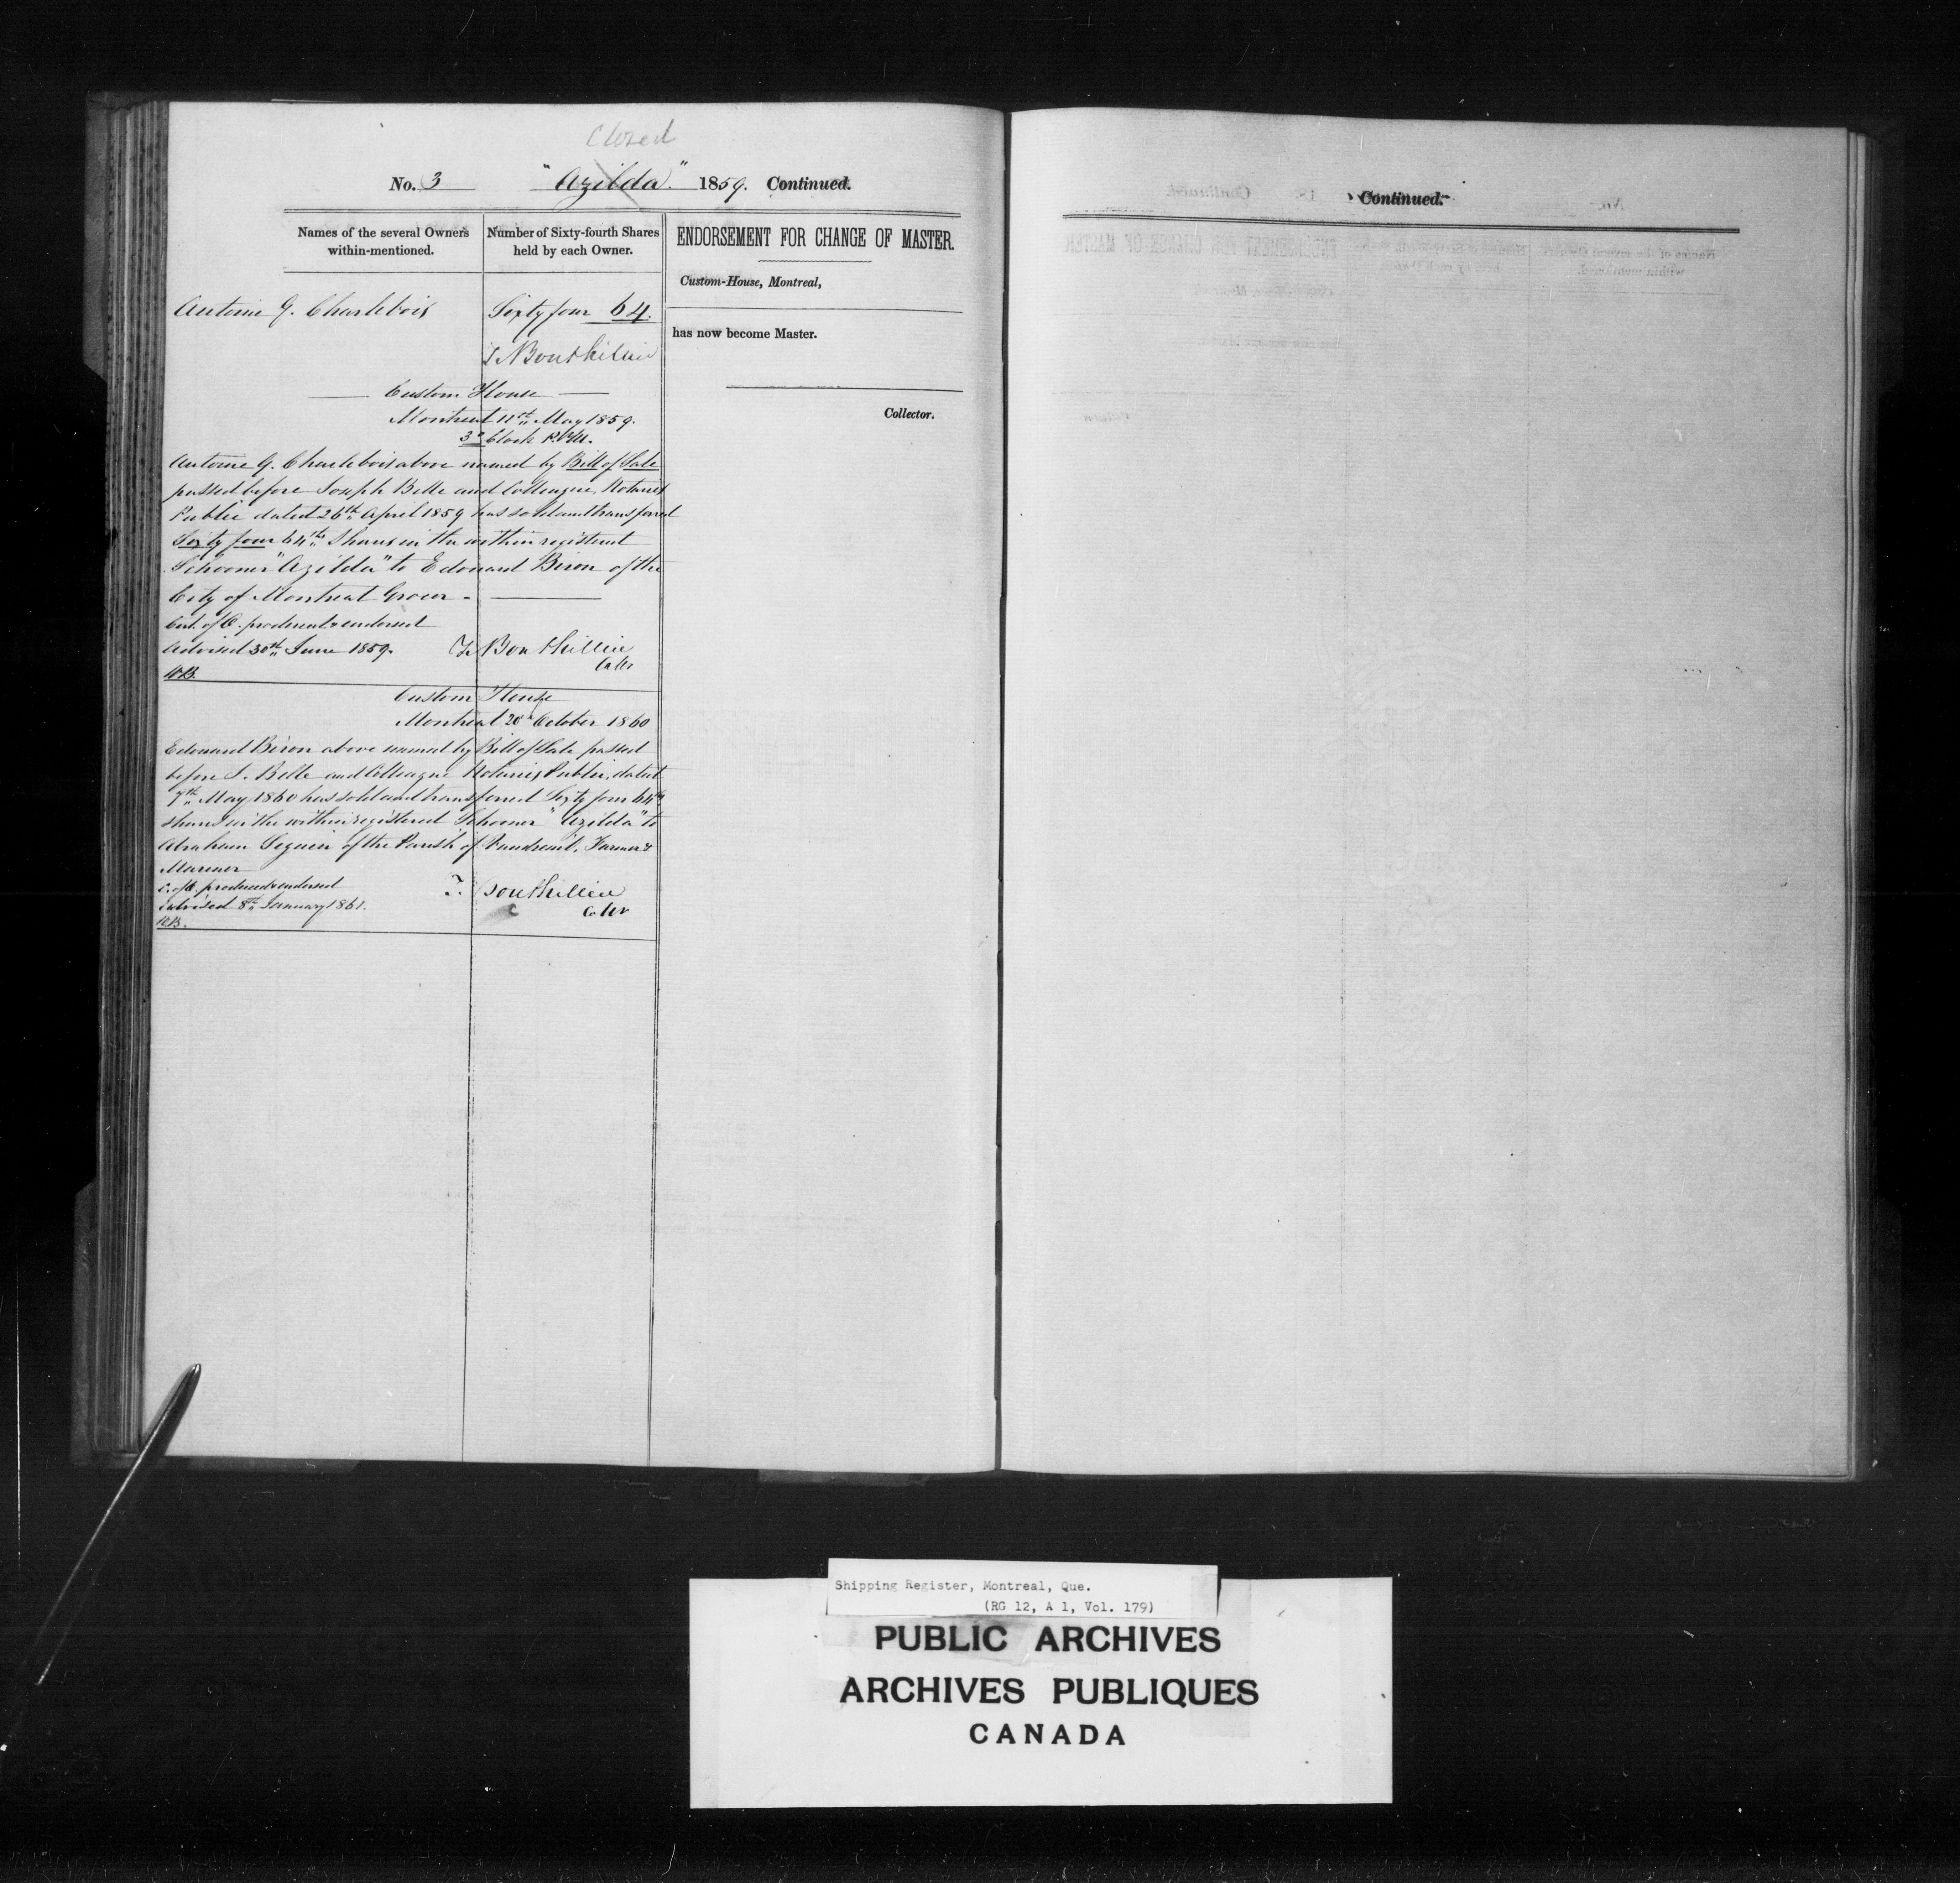 Closed
No. 3 "Azilda" 1859. Continued.
Names of the several Owners within-mentioned.
Number of Sixty-fourth Shares held by each Owner.
ENDORSEMENT FOR CHANGE OF MASTER.
Custom-House, Montreal,
has now become Master.
Collector.
Antoine G. Charlebois Sixty four 64.
T Bouthillier
Custom House
Montreal 11th May 1859.
3 o'Clock P.M.
Antoine G. Charlebois above named by Bill of Sale
passed before Joseph Belle and Colleague, Notaries
Public dated 26th April 1859 has sold and transferred
Sixty four 64ths Shares in the within registered
Schooner "Azilda" to Edouard Biron of the
City of Montreal Grocer -
Cert. of O. produced & endorsed
Advised 30th June 1859. T. Bouthillier
Collr
Custom House
Montreal 20th October 1860
Edouard Biron above named by Bill of Sale passed
before J. Belle and Colleague Notaries Public, dated
7th May 1860 has sold and transferred Sixty four 64ths
shares in the within registered Schooner "Azilda" to
Abraham Seguin of the Parish of Vaudreuil, Farmer &
Mariner
C. of O. produced & endorsed T. Bouthillier
advised 8th January 1861. Collr
Continued.
Shipping Register, Montreal, Que.
(RG 12, A 1, Vol. 179)
PUBLIC ARCHIVES
ARCHIVES PUBLIQUES
CANADA